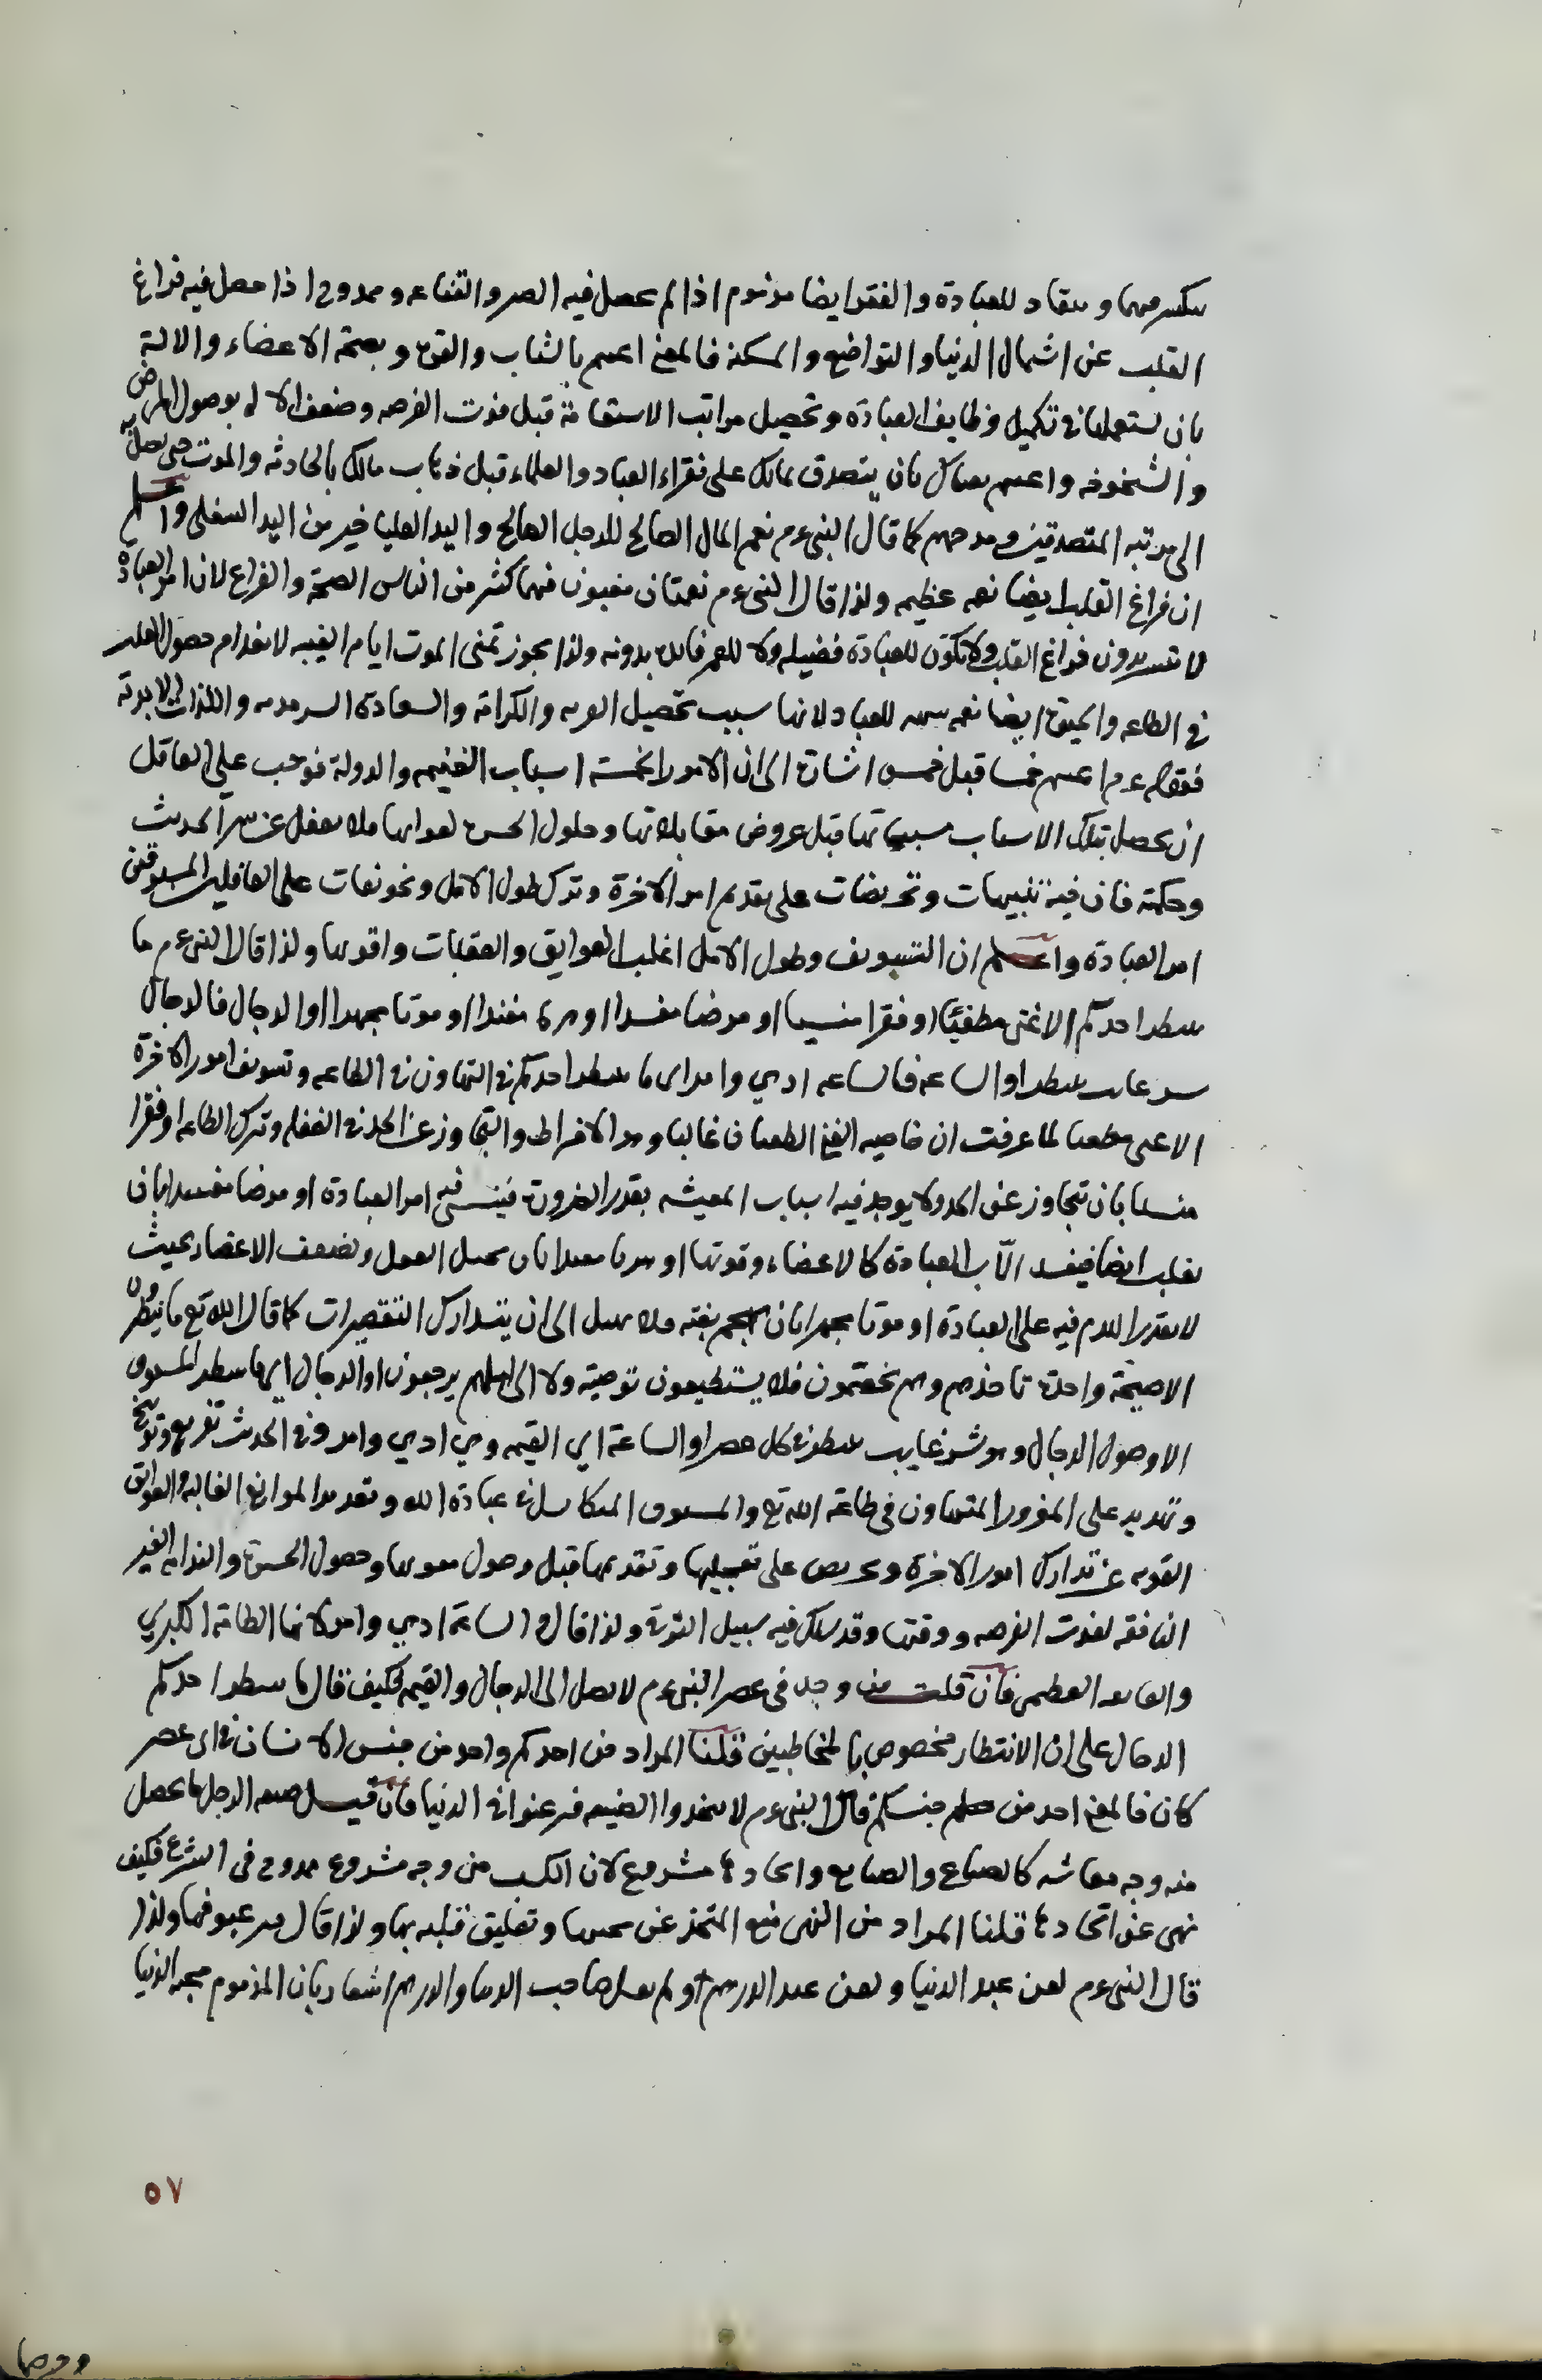 وينقاد للعبادة والفقر ايضا مذموم اذا لم يحصل فيه الصبر والقناعه وممدوح اذا حصل فيه فراغ
القلب عن اشتغال الدنيا والتواضع والمسكنة فالمعنى اغتنم بالشباب والقوة وبصحة الاعضاء والالة
بان تستعملها في تكميل وظايف العبادة وتحصيل مراتب الاستقامة قبل فوت الفرصه وضعف الالة بوصول المرض
والشيخوخه واغتنم بغناك بان يتصدق بمالك على فقراء العباد والعلماء قبل ذهاب مالك بالحادثه والموت حتى تصل به
الى مرتبه المتصدقين ومدحهم كما قال النبى عم نعم المال الصالح للرجل الصالح واليد العليا خير من اليد السفلى واعلم
ان فراغ القلب ايضا نعمه عظيمه ولذا قال النبى عم نعمتان مغبون فيهما كثير من الناس الصحة والفراغ لان امر العبادة
لا بدون فراغ القلب ولا تكون للعبادة فضيله ولا للعمر فايدة بدونه ولذا يجوز تمنى الموت ايام الغيبه لانعدام حصول
في الطاعه والحيوة ايضا نعمه للعباد لانها سبب تحصيل القربه والكرامة والسعادة السرمديه واللذات الابدية
فقوله عم اغتنم خمسا قبل خمس اشارة الى ان الامور الخمسة اسباب الغنيمه والدولة فوجب على العاقل
ان يحصل بتلك الاسباب مسبباتها قبل عروض مقابلاتها وحلول الحسرة لفواتها فلا تغفل عن سر الحديث
وحكمته فان فيه تنبيهات وتحريضات على تقديم امر الاخرة وترك طول الامل وتخويفات على الغافلين المسوفين
امر العبادة واعلم ان التسويف وطول الامل اغلب العوايق والعقبات واقويها ولذا قال النبى عم ما
ينتظر احدكم الا غنى مطغيا او فقرا منسيا او مرضا مفسدا او هرما مفندا او موتا مجهدا او الدجال فالدجال
شر غايب ينتظر او الساعه فالساعه ادهي وامر اى ما ينتظر احدكم في التهاون في الطاعه وتسويف امور الاخرة
الا غنى مطغيا لما عرفت ان خاصيه الغنى الطغيان غالبا وهو الافراط والتجاوز عن الحد في الغفله وترك الطاعه او فقرا
منسيا بان تتجاوز عن الحد ولا يوجد فيه اسباب المعيشه بقدر الضرورة فينسى فيه امر العبادة او مرضا مفسدا بان
يغلب ايضا فيفسد الآت العبادة كالاعضاء وقوتها او هرما مفندا بان العقل ويضعف الاعضاء بحيث
لا يقدر الهرم فيه على العبادة او موتا مجهزا بان يهجم بغته فلا يمهل الى ان يتدارك التقصيرات كما قال الله تع ما ينظرون
الا صيحة واحدة تاخذهم وهم يخصمون فلا يستطيعون توصية ولا الى اهلهم يرجعون او الدجال اى ما ينتظر المسوف
الا وصول الدجال وهو شر غايب ينتظر في كل عصر او الساعة اي القيمه وهي ادهي وامر وفي الحديث تقريع وتوبيخ
وتهديد على المغرور المتهاون في طاعة الله تع والمسوف المتكاسل في عبادة الله وتعديد الموانع الغالبه والعوايق
القويه عن تدارك امور الاخرة وتحريص على تعجيلها وتقديمها قبل وصول وحصول الحسرة والندامه الغير
النافعه لفوت الفرصه ووقتها وقد سلك فيه سبيل التوبة ولذا قال والساعة ادهي وامر لانها الطامة الكبري
العظمى فان قلت من وجد فى عصر النبى عم لا يصل الى الدجال والقيمه فكيف قال ما ينتظر احدكم
الدجال على ان الانتظار مخصوص بالمخاطبين قلنا المراد من احدكم واحد من جنس الانسان في اى عصر
كان فالمعنى احد من جنسكم قال النبى عم لا تتخذوا الضيعه فترغبوا في الدنيا فان قيل ضيعه الرجل ما يحصل
منه وجه معاشه كالصباغ والصنايع واتخاذها مشروع لان الكسب من وجه مشروع ممدوح فى الشرع فكيف
نهى عن اتخاذها قلنا المراد من النهى منع المتخذ عن محبتها وتعليق قلبه بها ولذا قال فترغبوا فيها ولذا
قال النبى عم لعن عبد الدنيا ولعن عبد الدرهم ولم يقل صاحب الدنيا والدرهم اشعار بان المذموم محبه الدنيا
٥٧